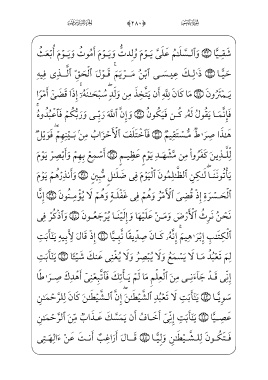 شَقِيًّا ۝ وَٱلسَّلَـٰمُ عَلَىَّ يَوْمَ وُلِدتُّ وَيَوْمَ أَمُوتُ وَيَوْمَ أُبْعَثُ
حَيًّا ۝ ذَٰلِكَ عِيسَى ٱبْنُ مَرْيَمَ ۚ قَوْلَ ٱلْحَقِّ ٱلَّذِى فِيهِ
يَمْتَرُونَ ۝ مَا كَانَ لِلَّهِ أَن يَتَّخِذَ مِن وَلَدٍ ۖ سُبْحَـٰنَهُۥٓ ۚ إِذَا قَضَىٰٓ أَمْرًا
فَإِنَّمَا يَقُولُ لَهُۥ كُن فَيَكُونُ ۝ وَإِنَّ ٱللَّهَ رَبِّى وَرَبُّكُمْ فَٱعْبُدُوهُ ۚ
هَـٰذَا صِرَٰطٌ مُّسْتَقِيمٌ ۝ فَٱخْتَلَفَ ٱلْأَحْزَابُ مِنۢ بَيْنِهِمْ ۖ فَوَيْلٌ
لِّلَّذِينَ كَفَرُوا۟ مِن مَّشْهَدِ يَوْمٍ عَظِيمٍ ۝ أَسْمِعْ بِهِمْ وَأَبْصِرْ يَوْمَ
يَأْتُونَنَا ۖ لَـٰكِنِ ٱلظَّـٰلِمُونَ ٱلْيَوْمَ فِى ضَلَـٰلٍ مُّبِينٍ ۝ وَأَنذِرْهُمْ يَوْمَ
ٱلْحَسْرَةِ إِذْ قُضِىَ ٱلْأَمْرُ وَهُمْ فِى غَفْلَةٍ وَهُمْ لَا يُؤْمِنُونَ ۝ إِنَّا
نَحْنُ نَرِثُ ٱلْأَرْضَ وَمَنْ عَلَيْهَا وَإِلَيْنَا يُرْجَعُونَ ۝ وَٱذْكُرْ فِى
ٱلْكِتَـٰبِ إِبْرَٰهِيمَ ۚ إِنَّهُۥ كَانَ صِدِّيقًا نَّبِيًّا ۝ إِذْ قَالَ لِأَبِيهِ يَـٰٓأَبَتِ
لِمَ تَعْبُدُ مَا لَا يَسْمَعُ وَلَا يُبْصِرُ وَلَا يُغْنِى عَنكَ شَيْـًٔا ۝ يَـٰٓأَبَتِ
إِنِّى قَدْ جَآءَنِى مِنَ ٱلْعِلْمِ مَا لَمْ يَأْتِكَ فَٱتَّبِعْنِىٓ أَهْدِكَ صِرَٰطًا
سَوِيًّا ۝ يَـٰٓأَبَتِ لَا تَعْبُدِ ٱلشَّيْطَـٰنَ ۖ إِنَّ ٱلشَّيْطَـٰنَ كَانَ لِلرَّحْمَـٰنِ
عَصِيًّا ۝ يَـٰٓأَبَتِ إِنِّىٓ أَخَافُ أَن يَمَسَّكَ عَذَابٌ مِّنَ ٱلرَّحْمَـٰنِ
فَتَكُونَ لِلشَّيْطَـٰنِ وَلِيًّا ۝ قَالَ أَرَاغِبٌ أَنتَ عَنْ ءَالِهَتِى